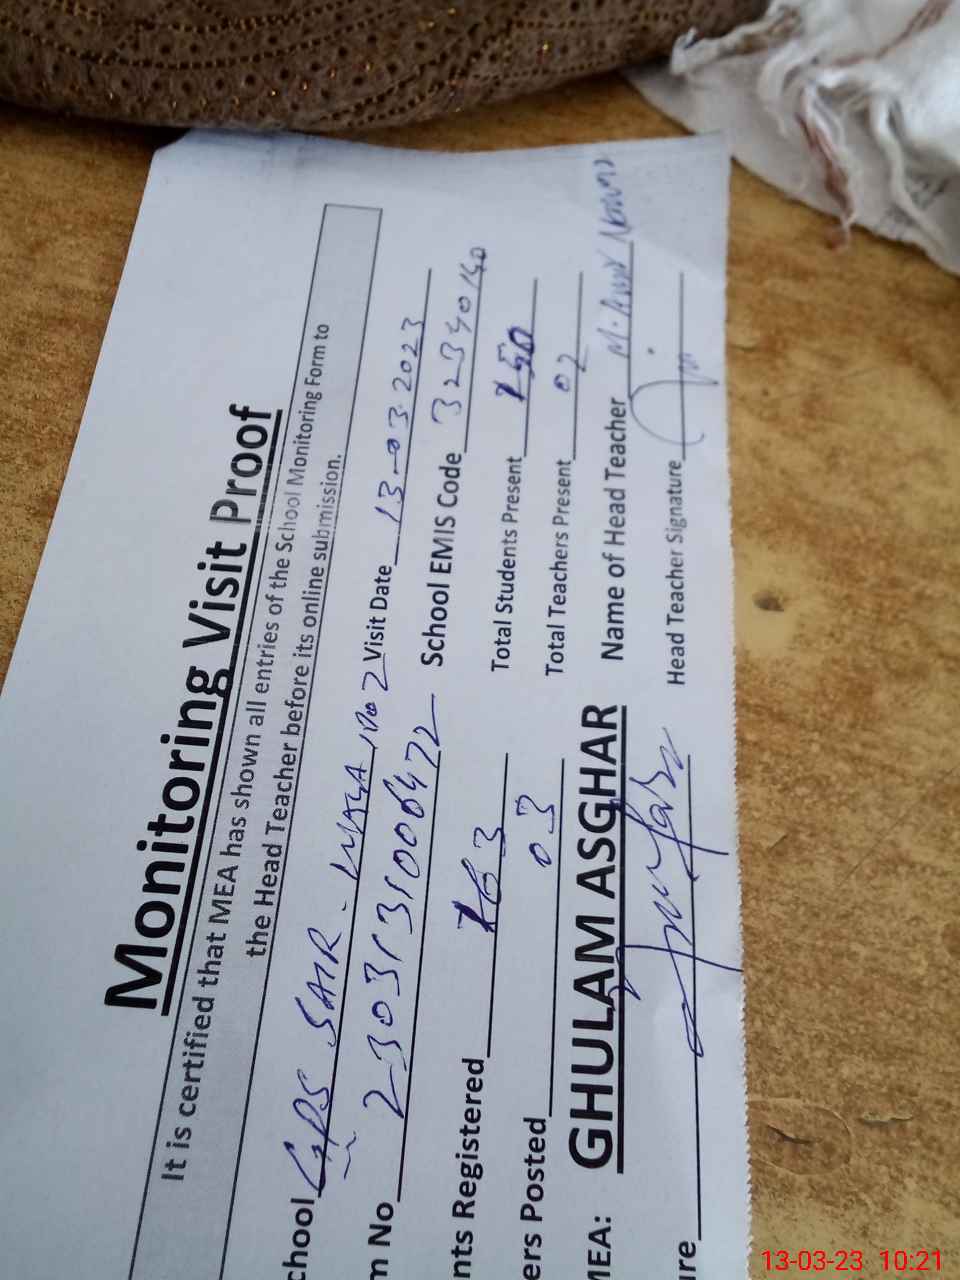 Monitoring Visit Proof
It is certified that MEA has shown all entries of the School Monitoring Form to
the Head Teacher before its online submission.
chool GPS SAIR- No 2 Visit Date 13-03-2023
m No 2303131006472 School EMIS Code 32340140
nts Registered 163 Total Students Present 150
ers Posted 03 Total Teachers Present 02
MEA: GHULAM ASGHAR Name of Head Teacher M.
ure Head Teacher Signature
13-03-23 10:21